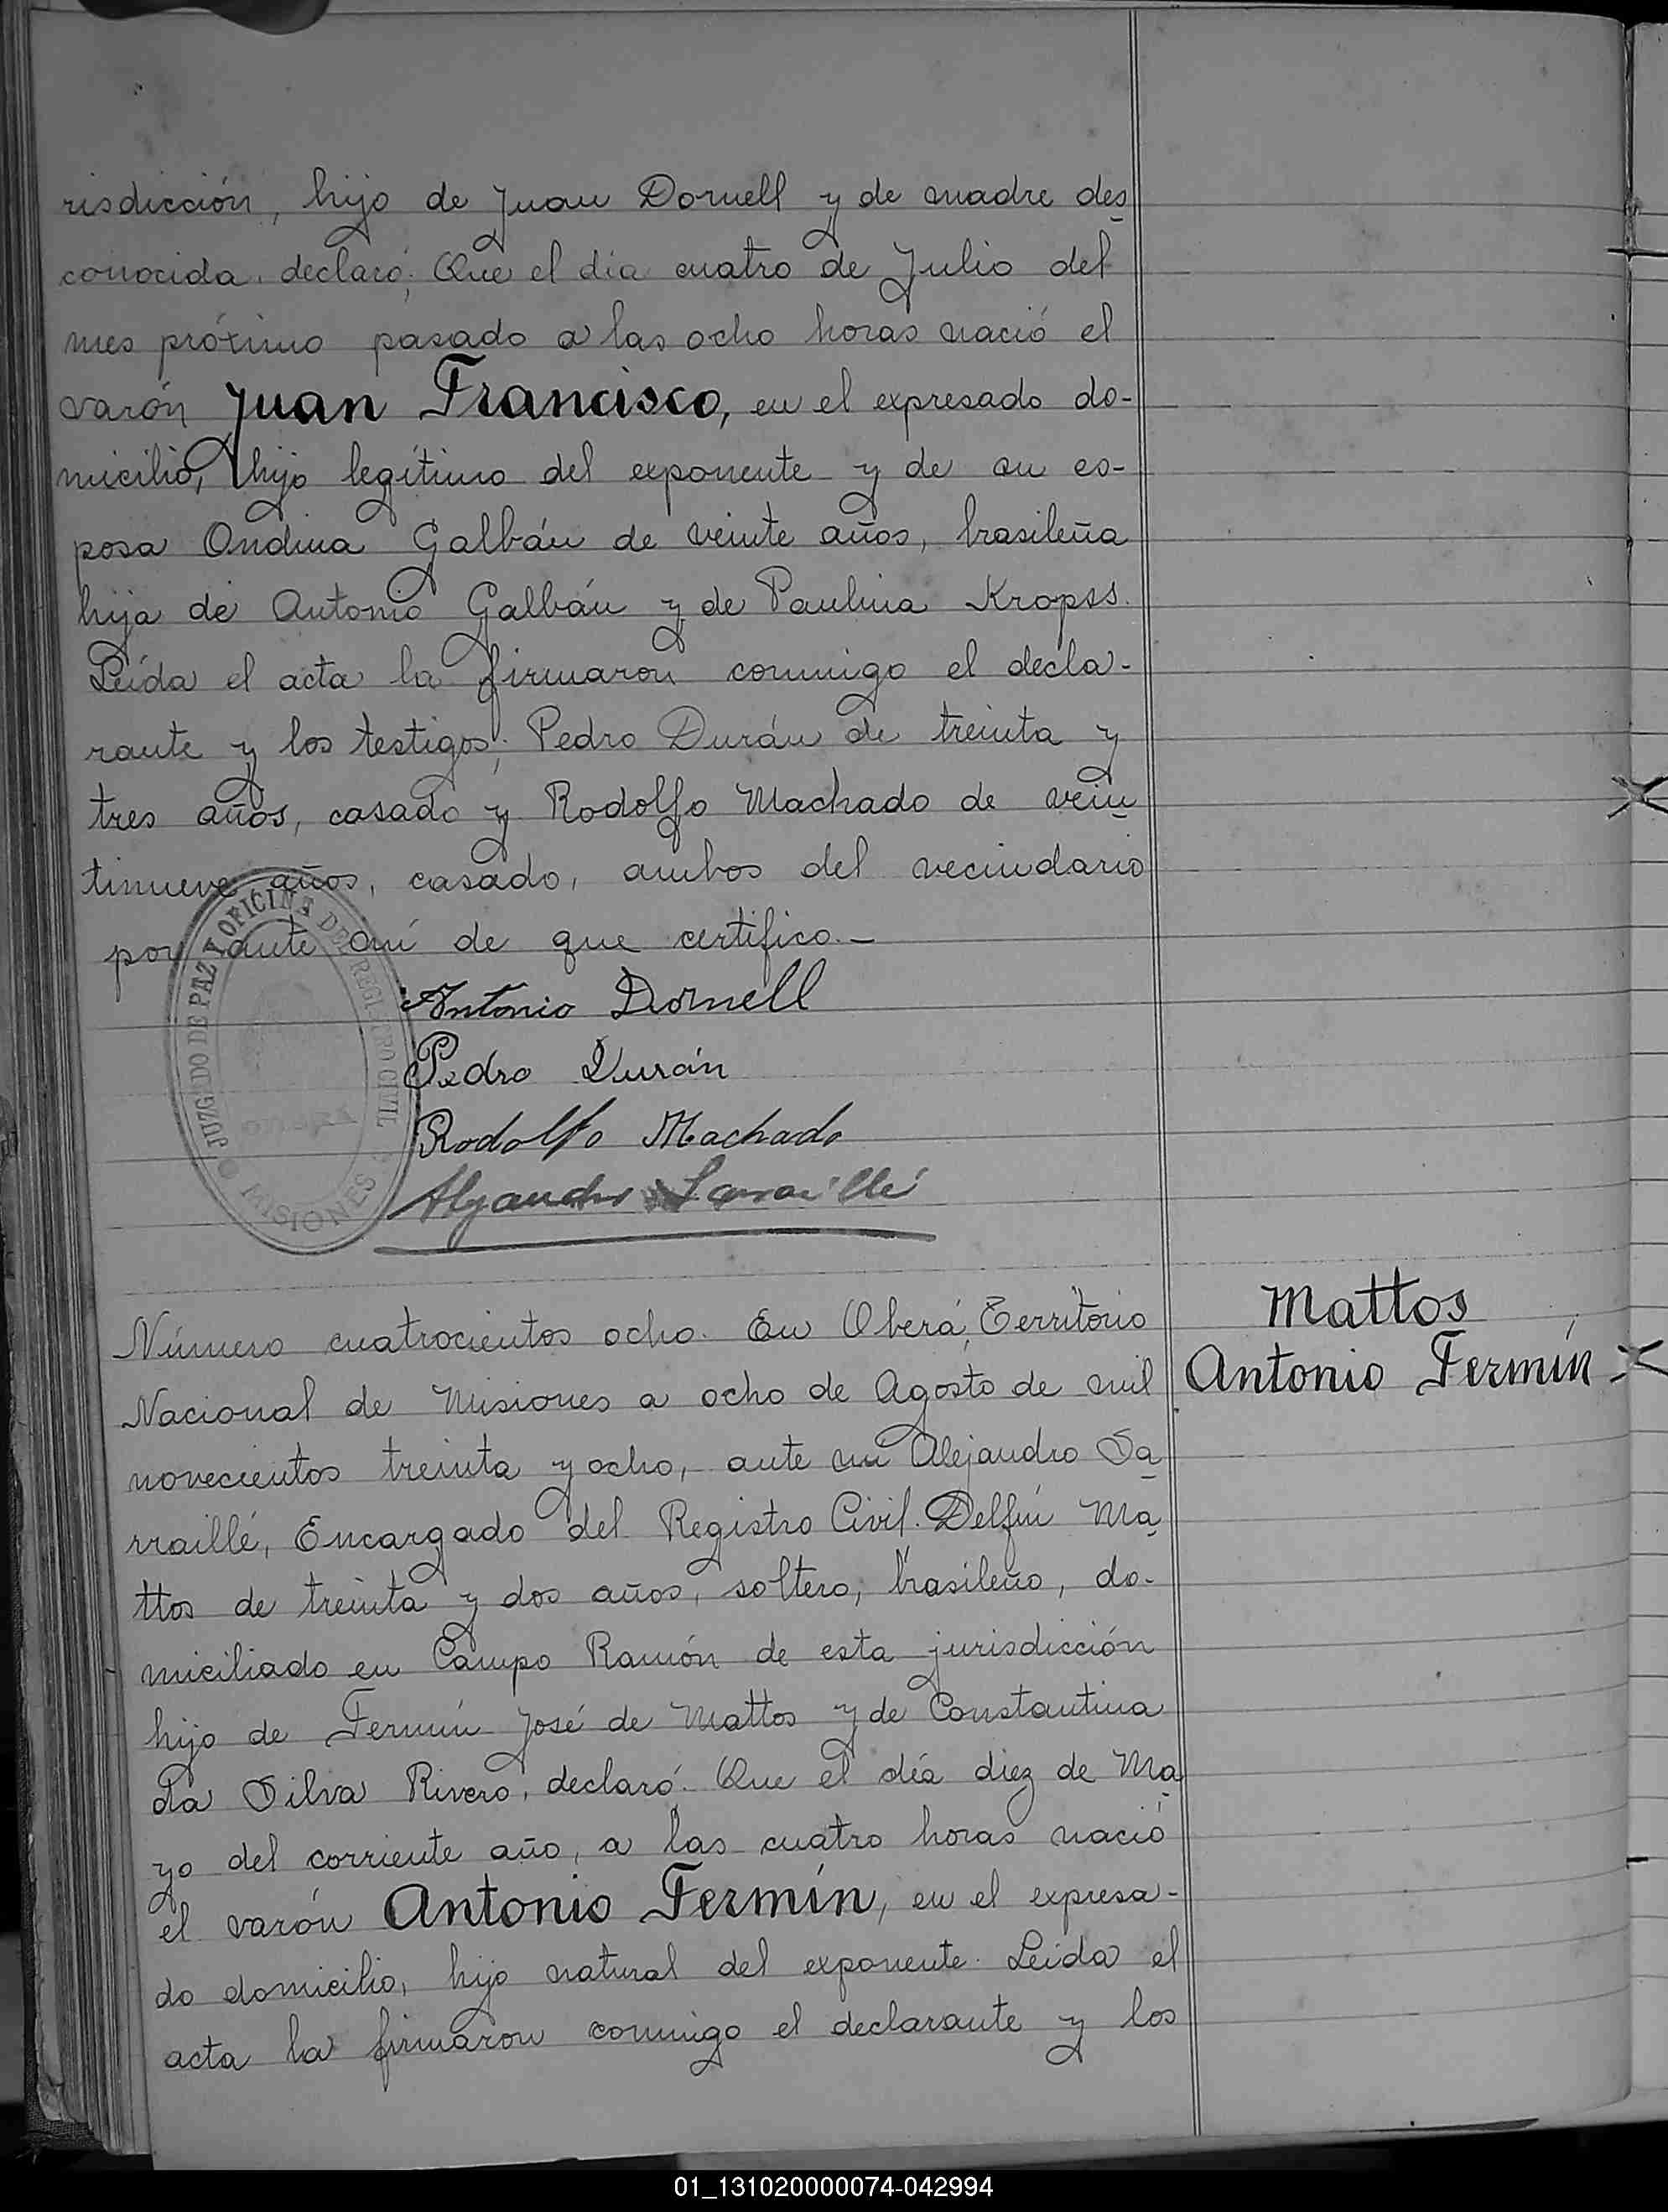 risdicción, hijo de Juan Dornell y de madre des
conocida, declaró: Que el día cuatro de Julio del
mes próximo pasado a las ocho horas nació el
varón Juan Francisco, en el expresado do-
micilio, hijo legítimo del exponente y de su es-
posa Ondina Galbán de veinte años, brasileña
hija de Antonio Galbán y de Paulina Kropss.
Leída el acta la firmaron conmigo el decla-
rante y los testigos; Pedro Durán de treinta y
tres años, casado y Rodolfo Machado de vein
tinueve años, casado, ambos del vecindario
por ante mí de que certifico.—
JUZGADO DE PAZ Y OFICINA DEL REGISTRO CIVIL
MISIONES
Antonio Dornell
Pedro Durán
Rodolfo Machado
Alejandro Sarraillé
Mattos
Antonio Fermín.
Número cuatrocientos ocho. En Oberá, Territorio
Nacional de Misiones a ocho de Agosto de mil
novecientos treinta y ocho, ante mí Alejandro Sa
rraillé, Encargado del Registro Civil. Delfín Ma
ttos de treinta y dos años, soltero, brasileño, do-
miciliado en Campo Ramón de esta jurisdicción
hijo de Fermín José de Mattos y de Constantina
da Silva Rivero, declaró: Que el día diez de Ma
yo del corriente año, a las cuatro horas nació
el varón Antonio Fermín, en el expresa-
do domicilio, hijo natural del exponente. Leida el
acta la firmaron conmigo el declarante y los
01_131020000074-042994